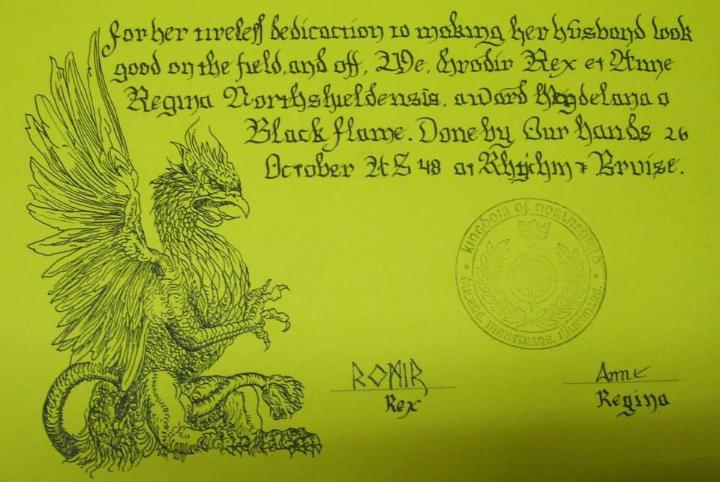 For her tireless dedication to making her husband look
good on the field, and off, We, Hrodir Rex et Anne
Regina Northshieldensis, award Magdelana a
Black flame. Done by Our hands 26
October AS 48 at Rhythm & Bruise.
Kingdom of Northshield
Ducere, Monstrare, Illuminare.
Rex
Anne
Regina